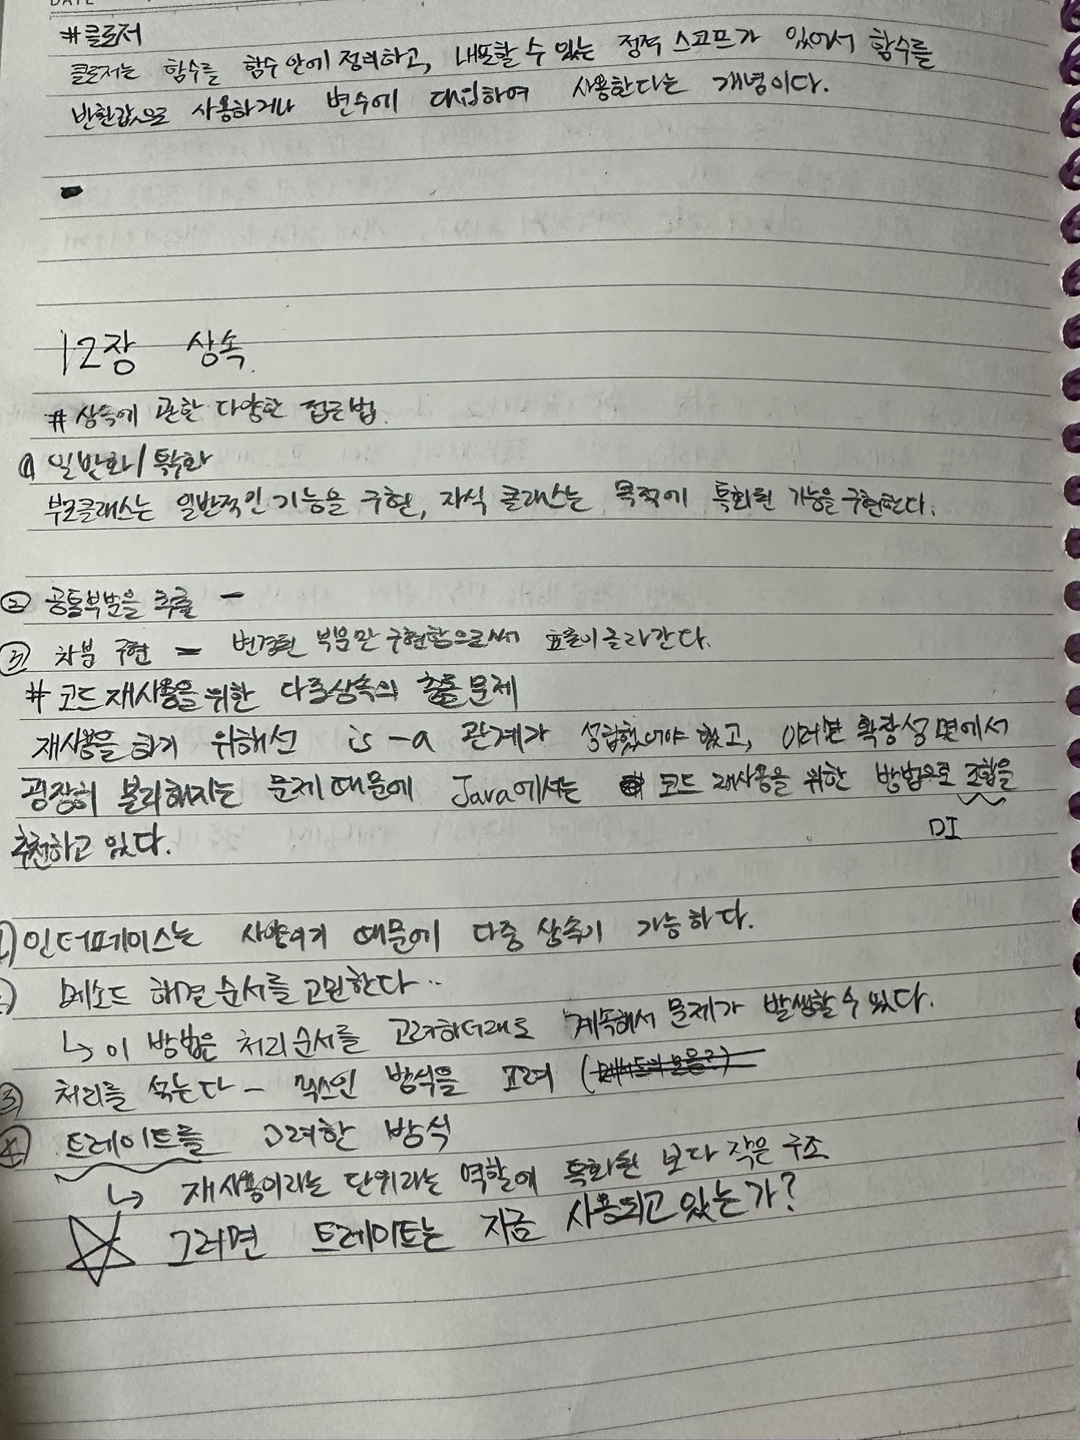 DATE
#클로저
클로저는 함수를 함수 안에 정의하고, 내포할 수 있는 정적 스코프가 있어서 함수를
반환값으로 사용하거나 변수에 대입하여 사용한다는 개념이다.
12장 상속.
# 상속에 관한 다양한 접근법.
① 일반화/특수화
부모클래스는 일반적인 기능을 구현, 자식 클래스는 목적에 특화된 기능을 구현한다.
② 공통부분을 추출 -
③ 차분 구현 - 변경된 부분만 구현함으로써 효율이 올라간다.
# 코드 재사용을 위한 다중상속의 충돌 문제
재사용을 하기 위해선 is-a 관계가 성립했어야 했고, 이러면 확장성 면에서
굉장히 불리해지는 문제 때문에 Java에서는 코드 재사용을 위한 방법으로 조합을
DI
추천하고 있다.
인터페이스는 사양이기 때문에 다중 상속이 가능하다.
메소드 해결순서를 고민한다..
↳ 이 방법은 처리 순서를 고려하더래도 계속해서 문제가 발생할 수 있다.
③ 처리를 섞는다 - 믹스인 방식을 고려
④ 트레이트를 고려한 방식
↳ 재사용이라는 단위라는 역할에 특화된 보다 작은 구조
☆ 그러면 트레이트는 지금 사용되고 있는가?